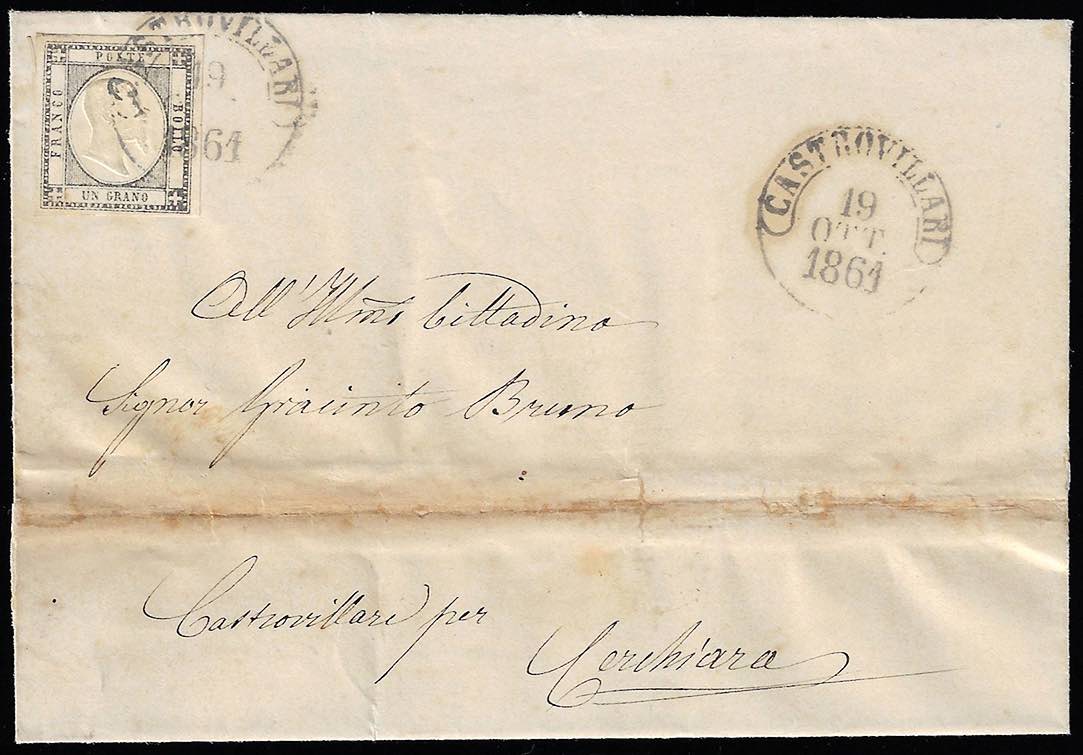 POSTE
FRANCO
BOLLO
UN GRANO
CASTROVILLARI
19
1861
CASTROVILLARI
19
OTT.
1861
All' Illmo Cittadino
Signor Giacinto Bruno
Castrovillari per
Cerchiara